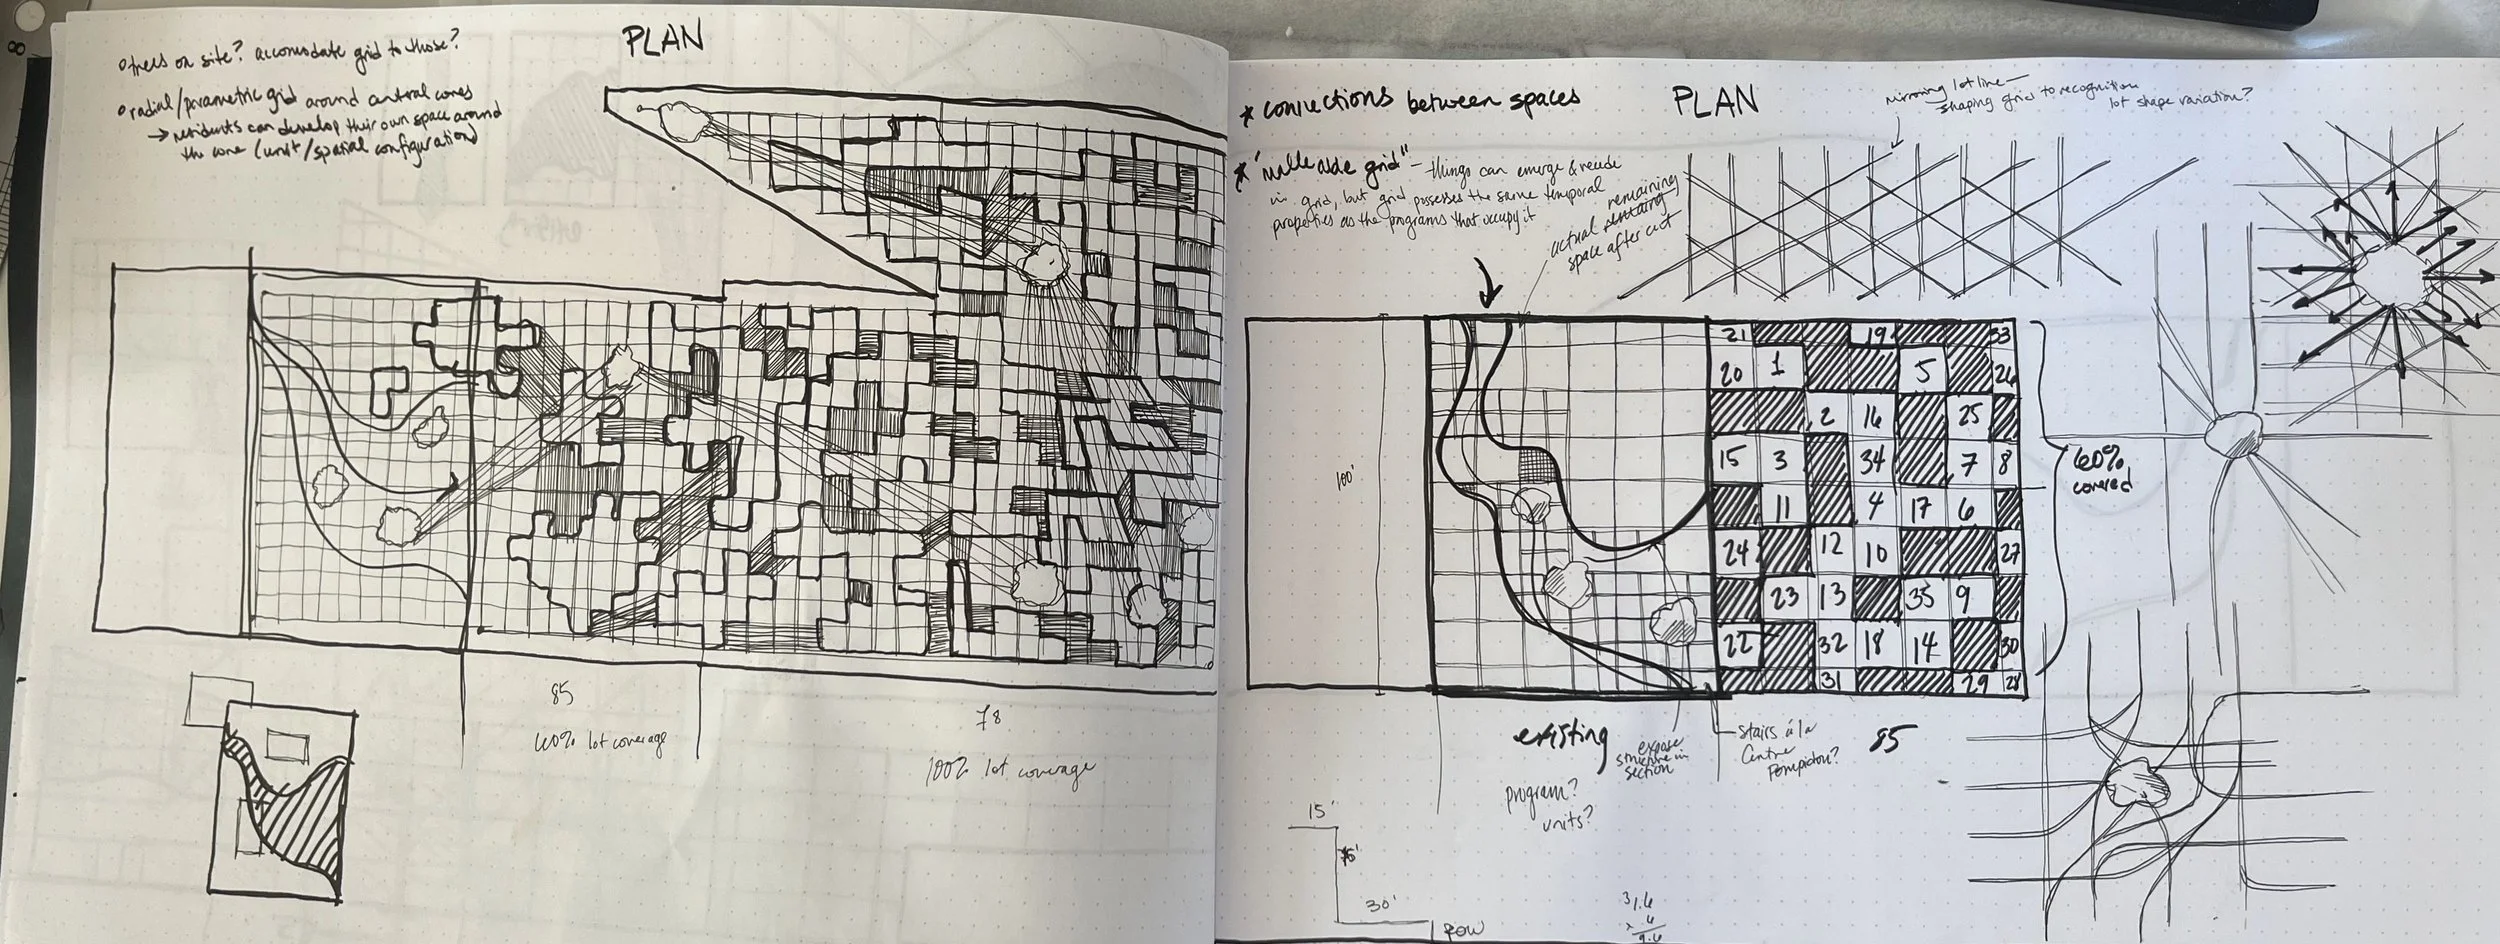 PLAN
o trees on site? accomodate grid to those?
o radial/parametric grid around central cores
→ residents can develop their own space around
the core (unit/spatial configuration)
85
60% lot coverage
78
100% lot coverage
* connections between spaces
PLAN
mirroring lot line —
shaping grid to recognition
lot shape variation?
* "malleable grid" – things can emerge & recede
in grid, but grid possesses the same temporal
properties as the programs that occupy it
actual remaining
space after cut
100'
21 19 33
20 1 5 26
2 16 25
15 3 34 7 8
11 4 17 6
24 12 10 27
23 13 35 9
22 32 18 14 30
31 29 28
60%
covered
existing
expose
structure in
section
stairs á la
Centre
Pompidou?
85
program?
units?
15'
30'
ROW
31.6